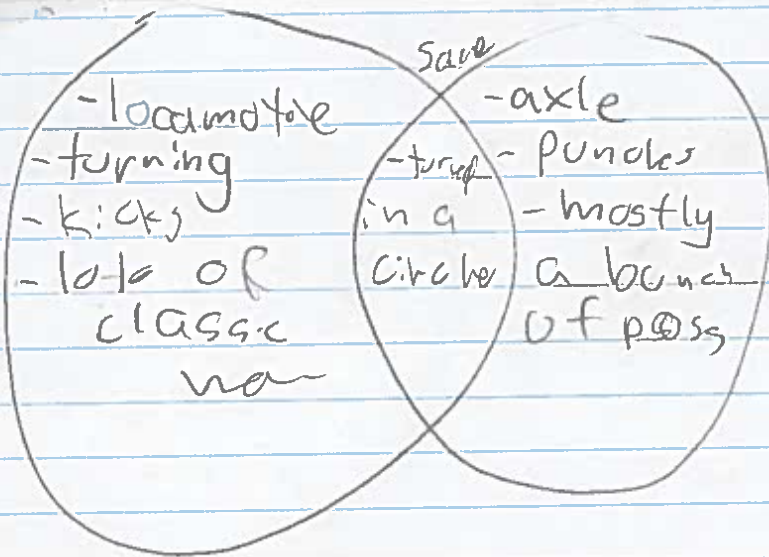 Save
-locamotove
-turning
-kicks
-lots of
classic
-turns
in a
circle
-axle
-punches
-mostly
a bounch
of poss